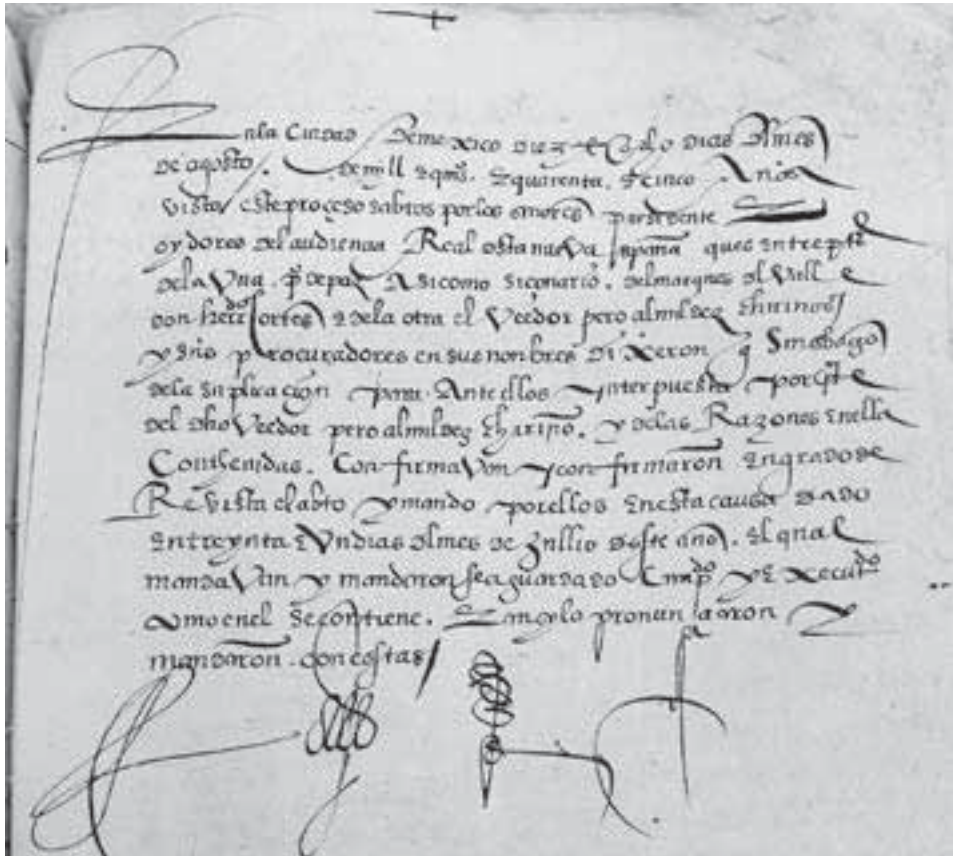 En la Ciudad de mexico diez e ocho dias del mes
de agosto. de mill e qios. e quarenta. e cinco Años
visto este proceso e abtos por los señores presidente
e oydores del audiencia Real desta nueva españa ques entre ptes
de la una. po de paz Asi como del marques del Valle
don herdo cortes e de la otra el Veedor pero almildez chirinos
y sus procuradores en sus nonbres dixeron q sin enbargo
de la suplicaçion para Ante ellos ynterpuesta por pte
del dho Veedor pero almildez chirino. y de las Razones en ella
Conthenidas. Confirmavan y confirmaron en grado de
Revista el abto y mando por ellos en esta causa dado
en treynta e un dias del mes de Jullio deste año. el qual
mandavan y mandaron sea guardado Cunpdo y executdo
como en el se contiene. E ansy lo pronunçiaron y
mandaron. con costas